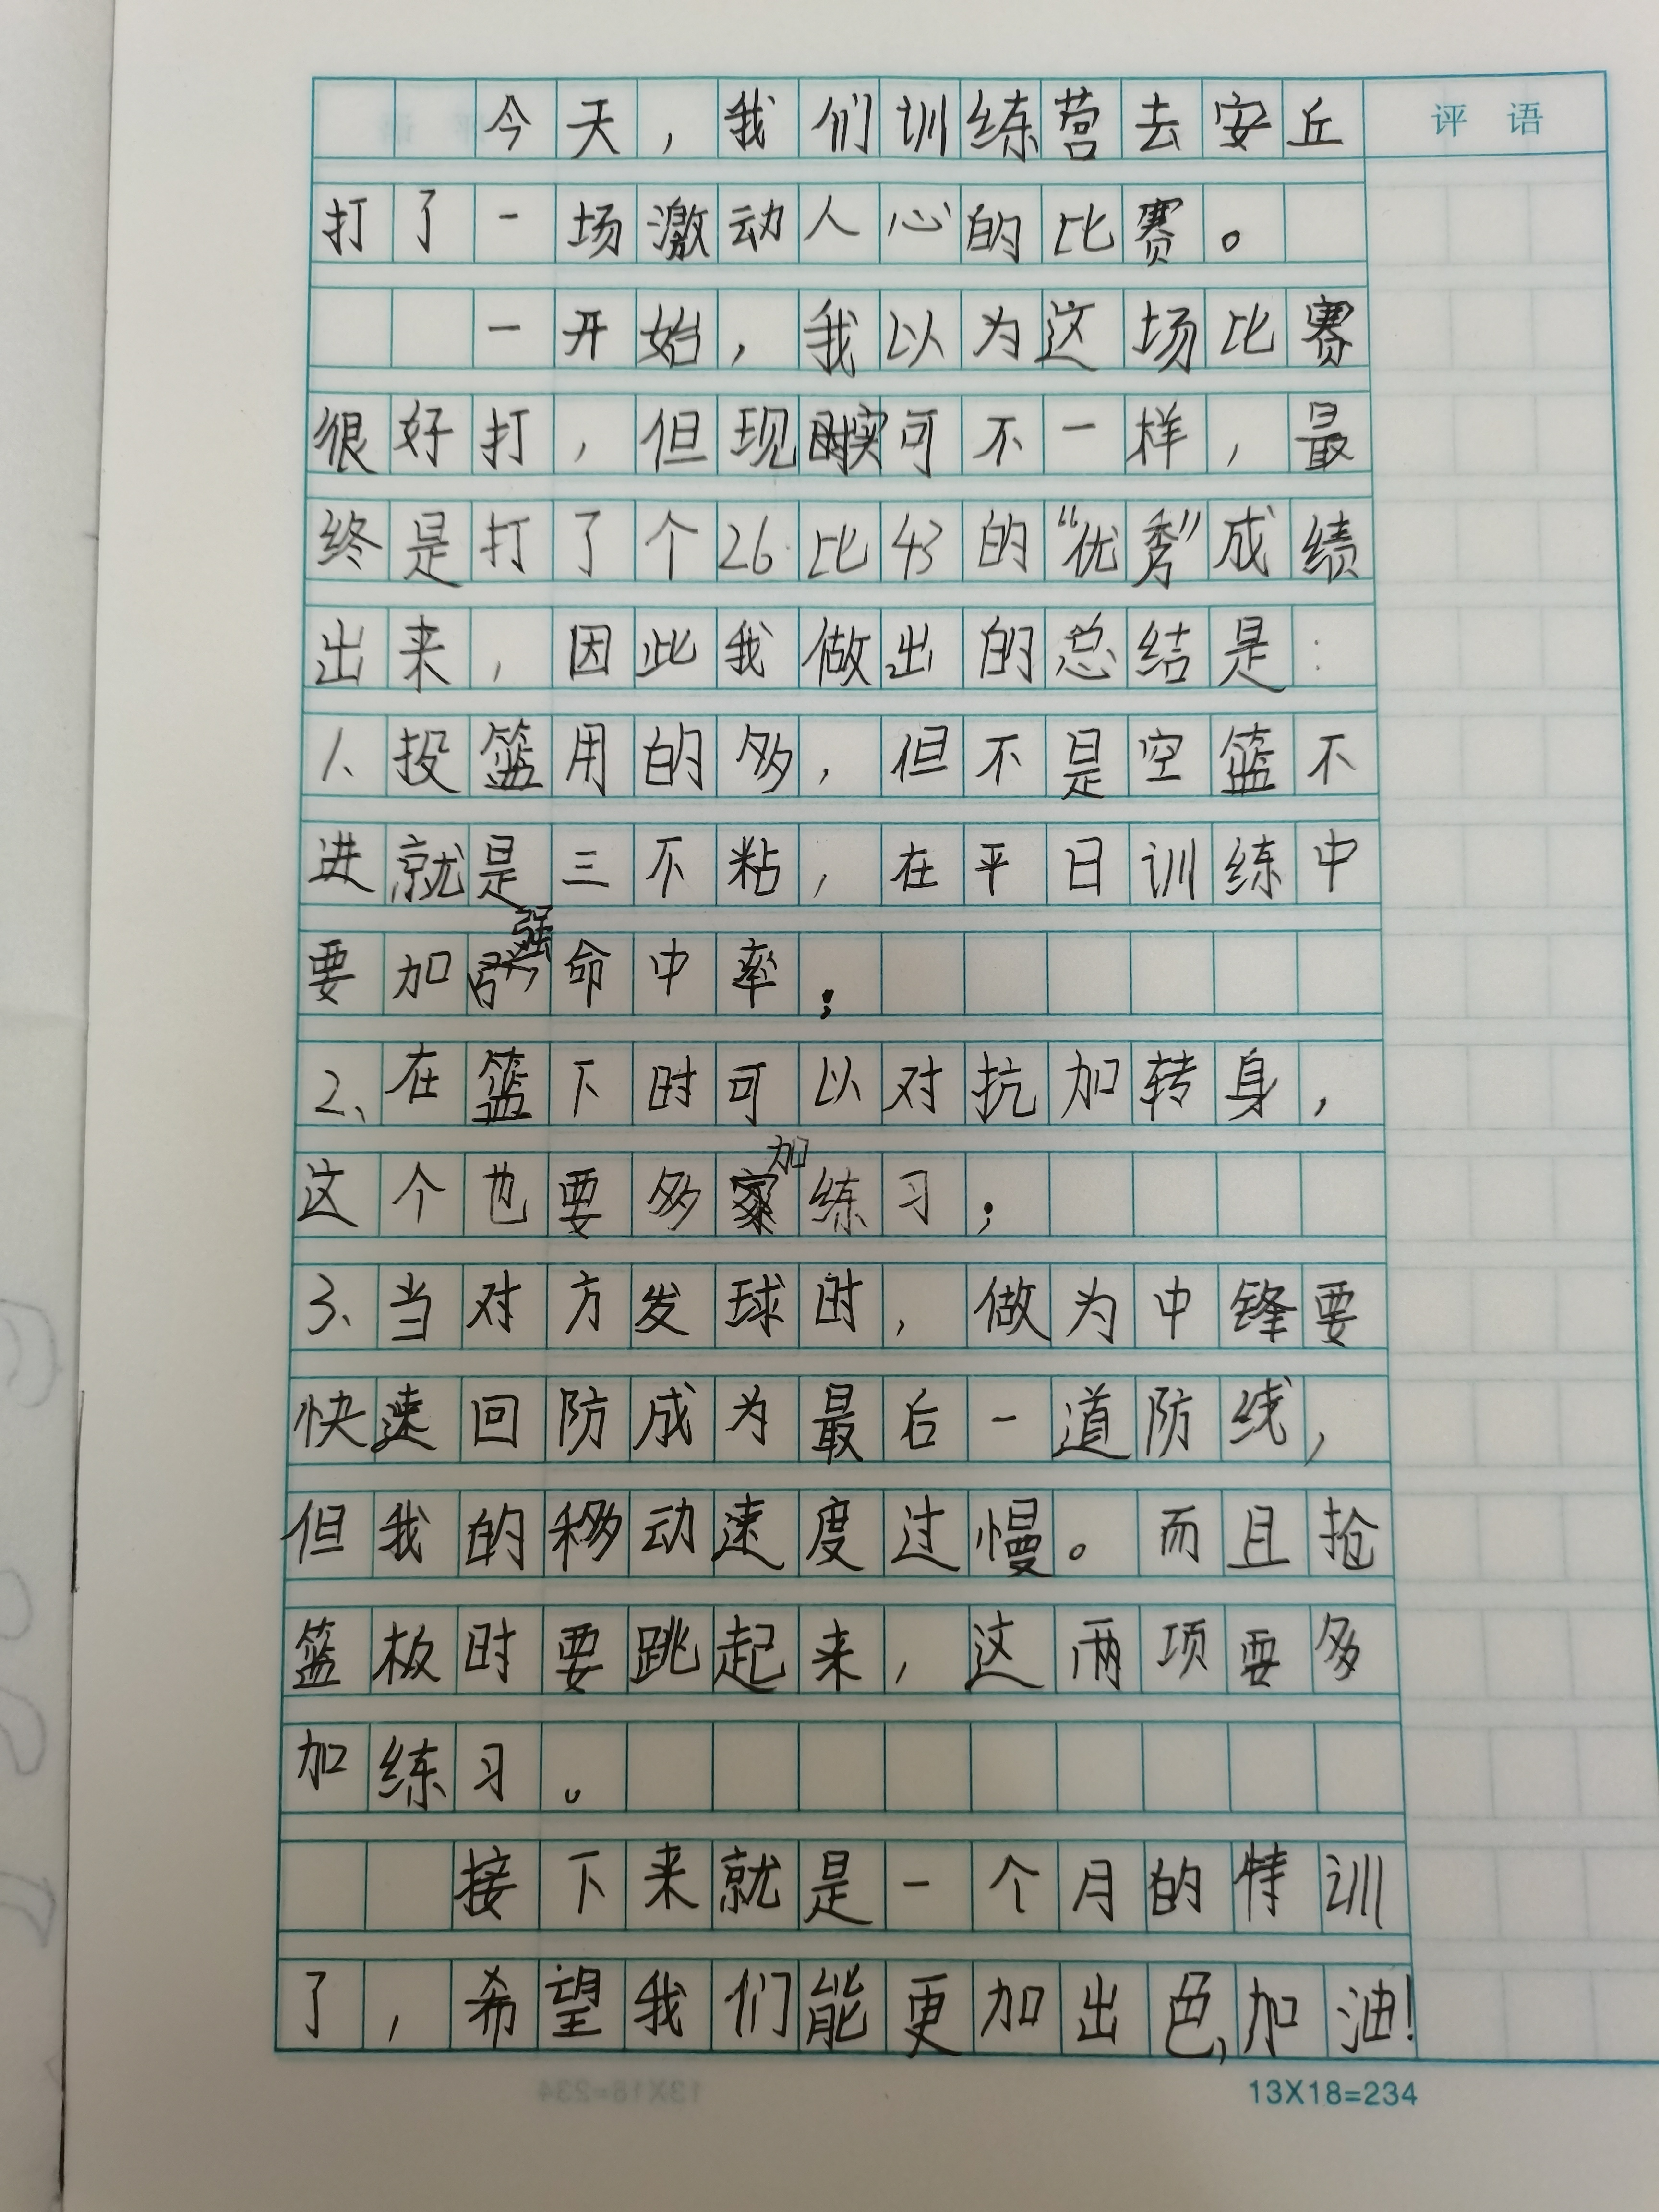 今天，我们训练营去安丘
评 语
打了一场激动人心的比赛。
一开始，我以为这场比赛
很好打，但现实可不一样，最
终是打了个26比43的“优秀”成绩
出来，因此我做出的总结是：
1、投篮用的多，但不是空篮不
进就是三不粘，在平日训练中
要加强命中率；
2、在篮下时可以对抗加转身，
这个也要多加练习；
3、当对方发球时，做为中锋要
快速回防成为最后一道防线，
但我的移动速度过慢。而且抢
篮板时要跳起来，这两项要多
加练习。
接下来就是一个月的特训
了，希望我们能更加出色，加油！
13X18=234